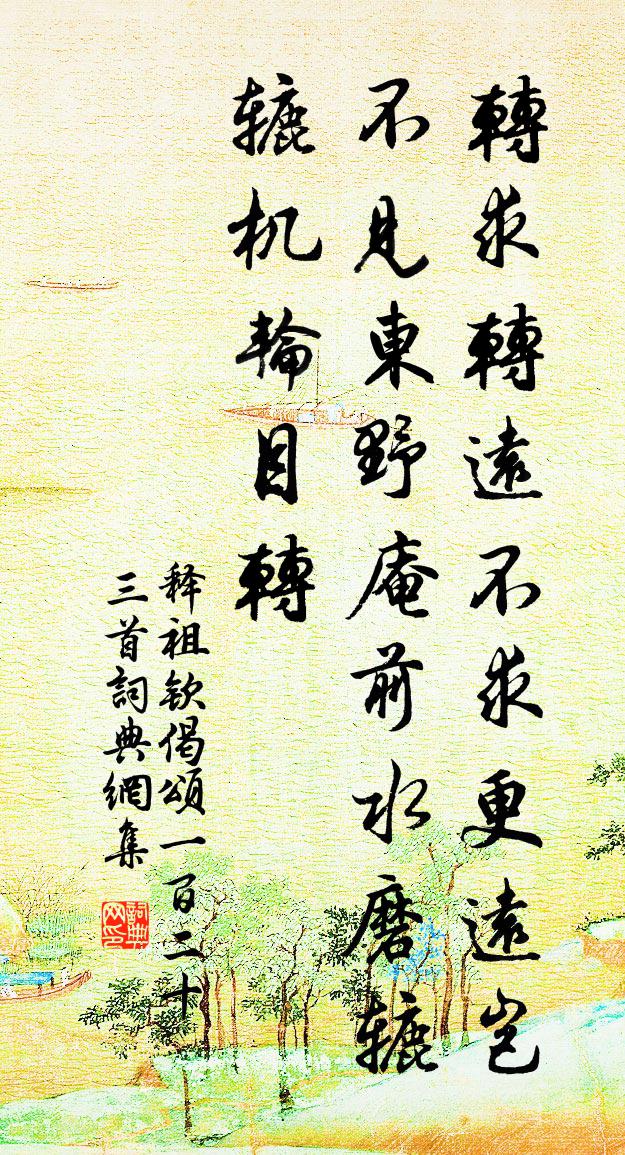 轉求轉遠不求更遠岂
不見東野庵前水磨辘
辘机輪目轉
释祖欽偈頌一百二十
三首詞典網集
詞典网印